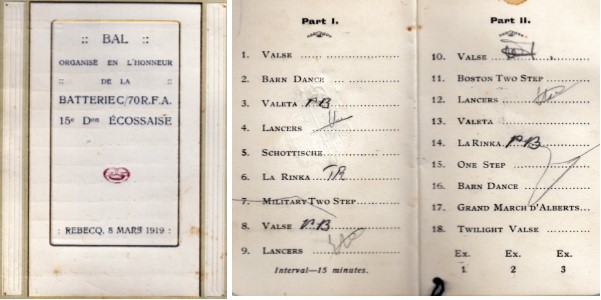 :: BAL ::
ORGANISÉ EN L'HONNEUR
:: DE LA ::
BATTERIE C/70 R.F.A.
15e Don ÉCOSSAISE
: REBECQ, 8 MARS 1919 :
Part I.
1. VALSE
2. BARN DANCE
3. VALETA P B
4. LANCERS
5. SCHOTTISCHE
6. LA RINKA
7. MILITARY TWO STEP
8. VALSE P B
9. LANCERS
Interval—15 minutes.
Part II.
10. VALSE
11. BOSTON TWO STEP
12. LANCERS
13. VALETA
14. LA RINKA P B
15. ONE STEP
16. BARN DANCE
17. GRAND MARCH D'ALBERTS
18. TWILIGHT VALSE
Ex. Ex. Ex.
1 2 3